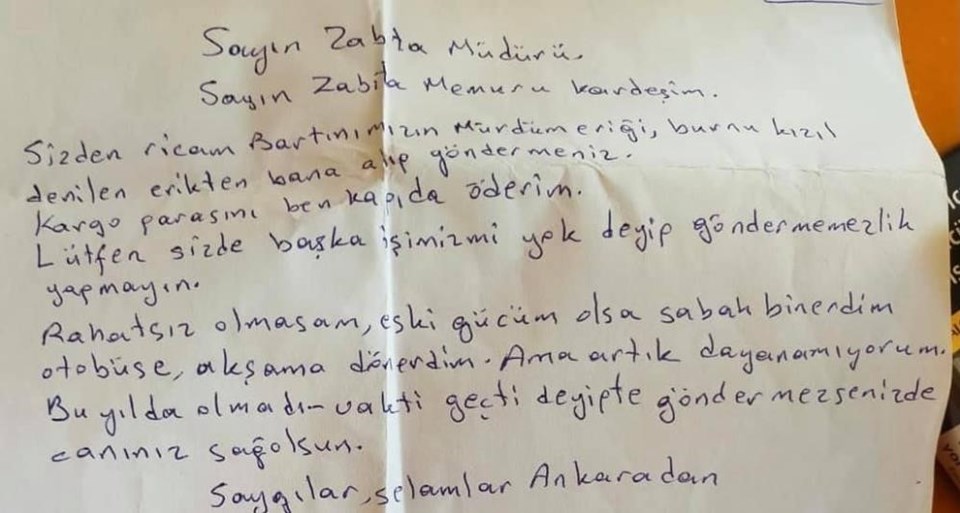 Sayın Zabıta Müdürü.
Sayın Zabıta Memuru kardeşim.
Sizden ricam Bartınımızın Mürdüm eriği, burnu kızıl
denilen erikten bana alıp göndermeniz.
Kargo parasını ben kapıda öderim.
Lütfen sizde başka işimizmi yok deyip göndermemezlik
yapmayın.
Rahatsız olmasam, eski gücüm olsa sabah binerdim
otobüse, akşama dönerdim. Ama artık dayanamıyorum.
Bu yılda olmadı-vakti geçti deyipte göndermezsenizde
canınız sağolsun.
Saygılar, selamlar Ankaradan